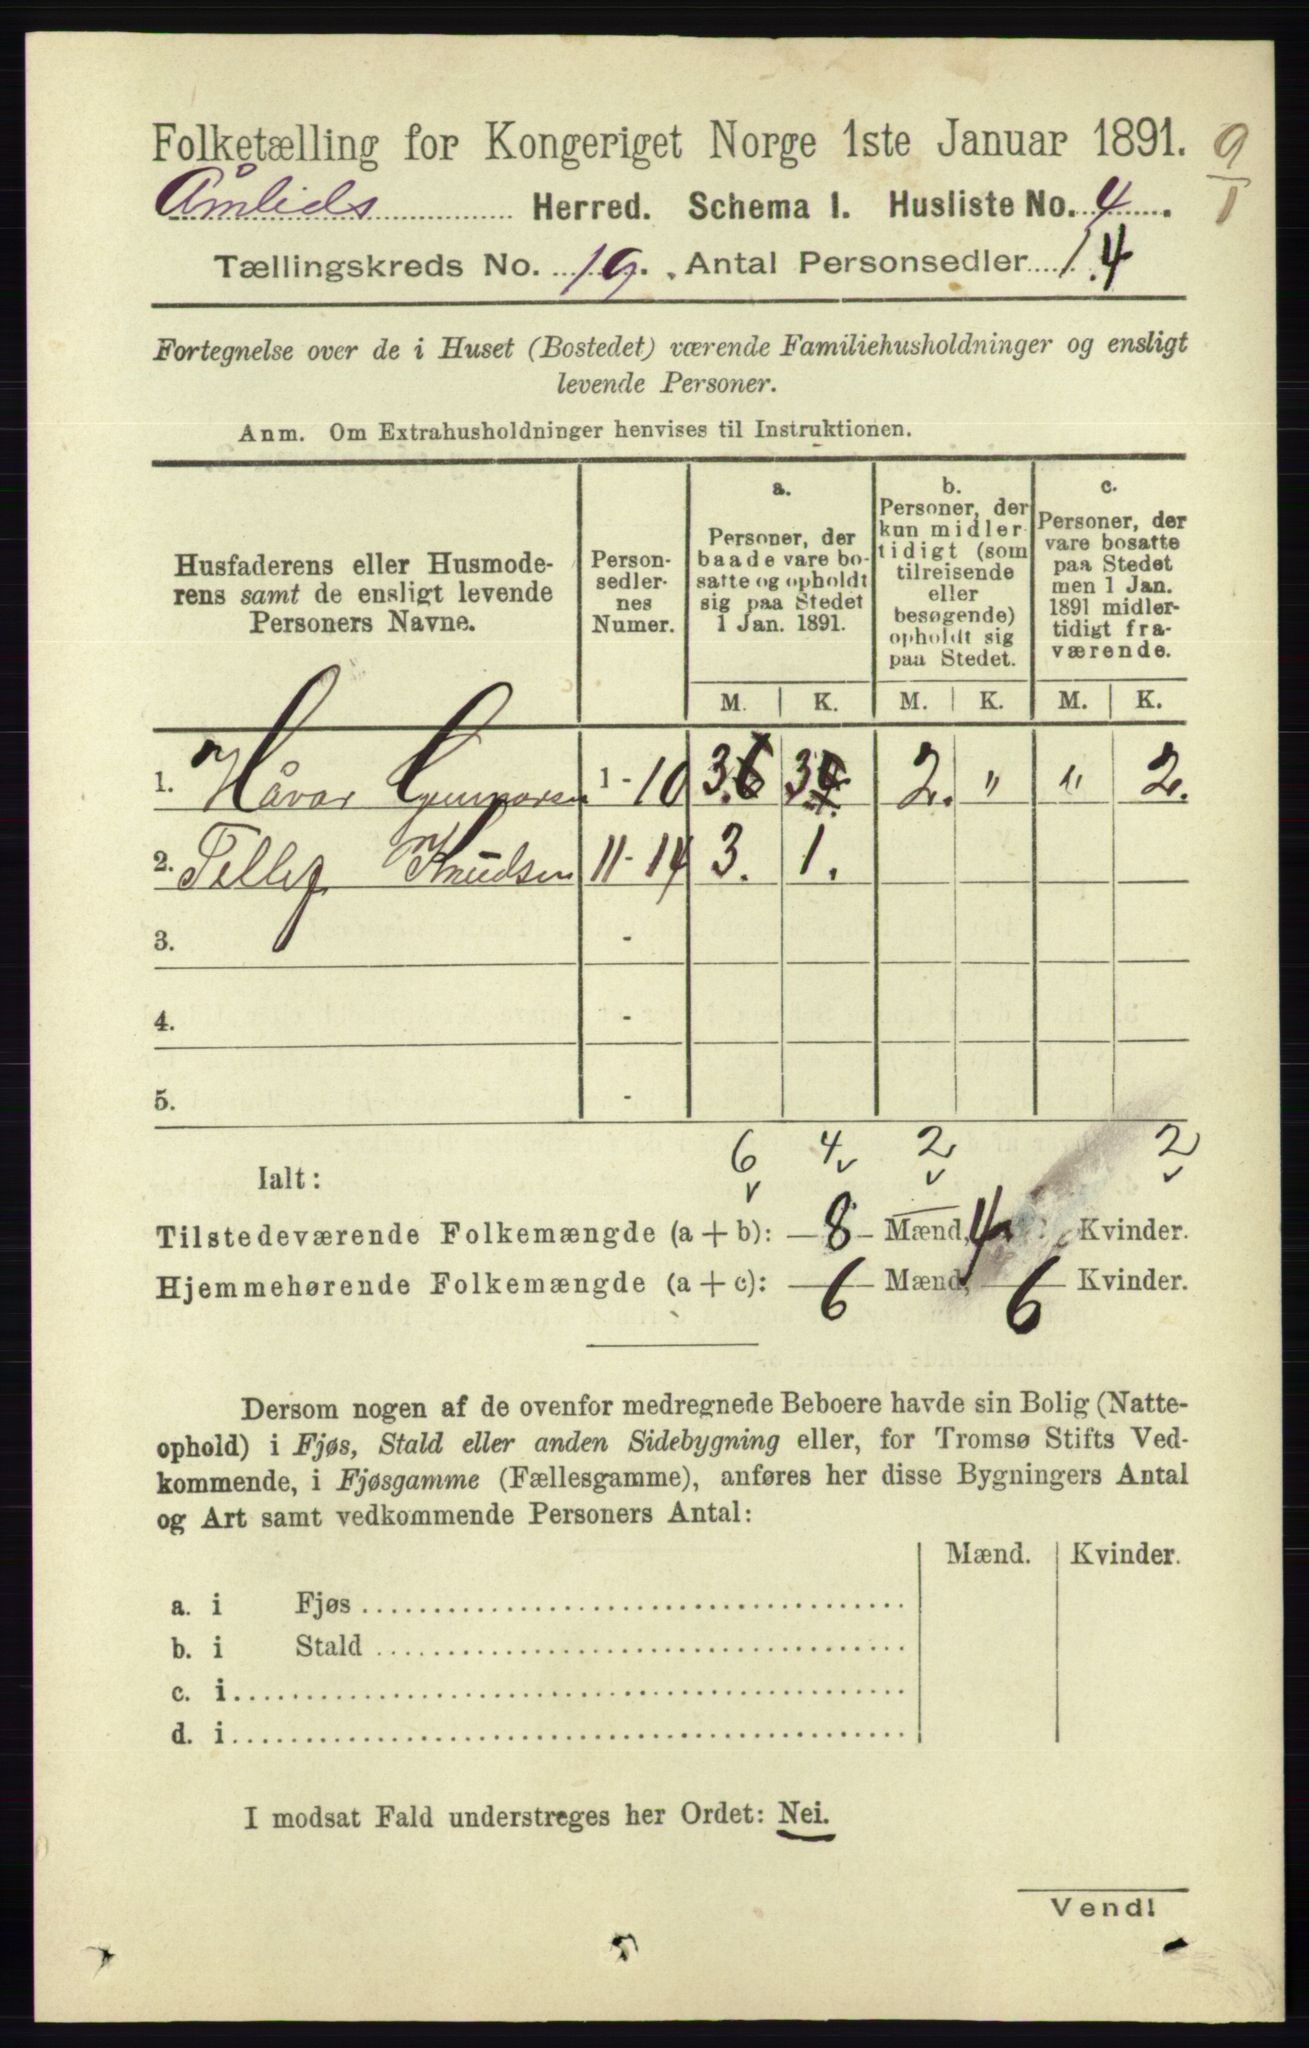 Folketælling for Kongeriget Norge 1ste Januar 1891.
9
1
Åmlids Herred. Schema 1. Husliste No. 4.
Tællingskreds No. 19. Antal Personsedler 14
Fortegnelse over de i Huset (Bostedet) værende Familiehusholdninger og ensligt
levende Personer.
Anm. Om Extrahusholdninger henvises til Instruktionen.
Husfaderens eller Husmode-
rens samt de ensligt levende
Personers Navne.
Person-
sedler-
nes
Numer.
a.
Personer, der
baade vare bo-
satte og opholdt
sig paa Stedet
1 Jan. 1891.
b.
Personer, der
kun midler-
tidigt (som
tilreisende
eller
besøgende)
opholdt sig
paa Stedet.
c.
Personer, der
vare bosatte
paa Stedet
men 1 Jan.
1891 midler-
tidigt fra-
værende.
M. K. M. K. M. K.
1. Håvar Gunnarsen 1-10 3 3 2. " " 2.
2. Tellef Knudsen 11-14 3. 1.
3. -
4. -
5. -
6 4 2 2
Ialt:
Tilstedeværende Folkemængde (a + b): 8 Mænd, 4 Kvinder.
Hjemmehørende Folkemængde (a + c): 6 Mænd, 6 Kvinder.
Dersom nogen af de ovenfor medregnede Beboere havde sin Bolig (Natte-
ophold) i Fjøs, Stald eller anden Sidebygning eller, for Tromsø Stifts Ved-
kommende, i Fjøsgamme (Fællesgamme), anføres her disse Bygningers Antal
og Art samt vedkommende Personers Antal:
Mænd. Kvinder.
a. i Fjøs
b. i Stald
c. i
d. i
I modsat Fald understreges her Ordet: Nei.
Vend!